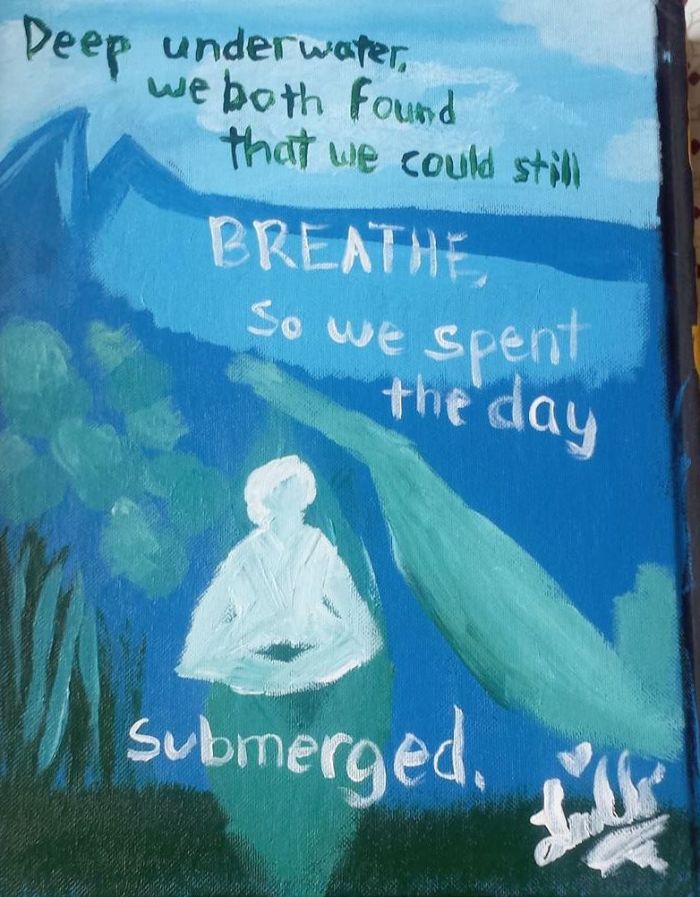 Deep underwater,
we both found
that we could still
BREATHE,
so we spent
the day
submerged.